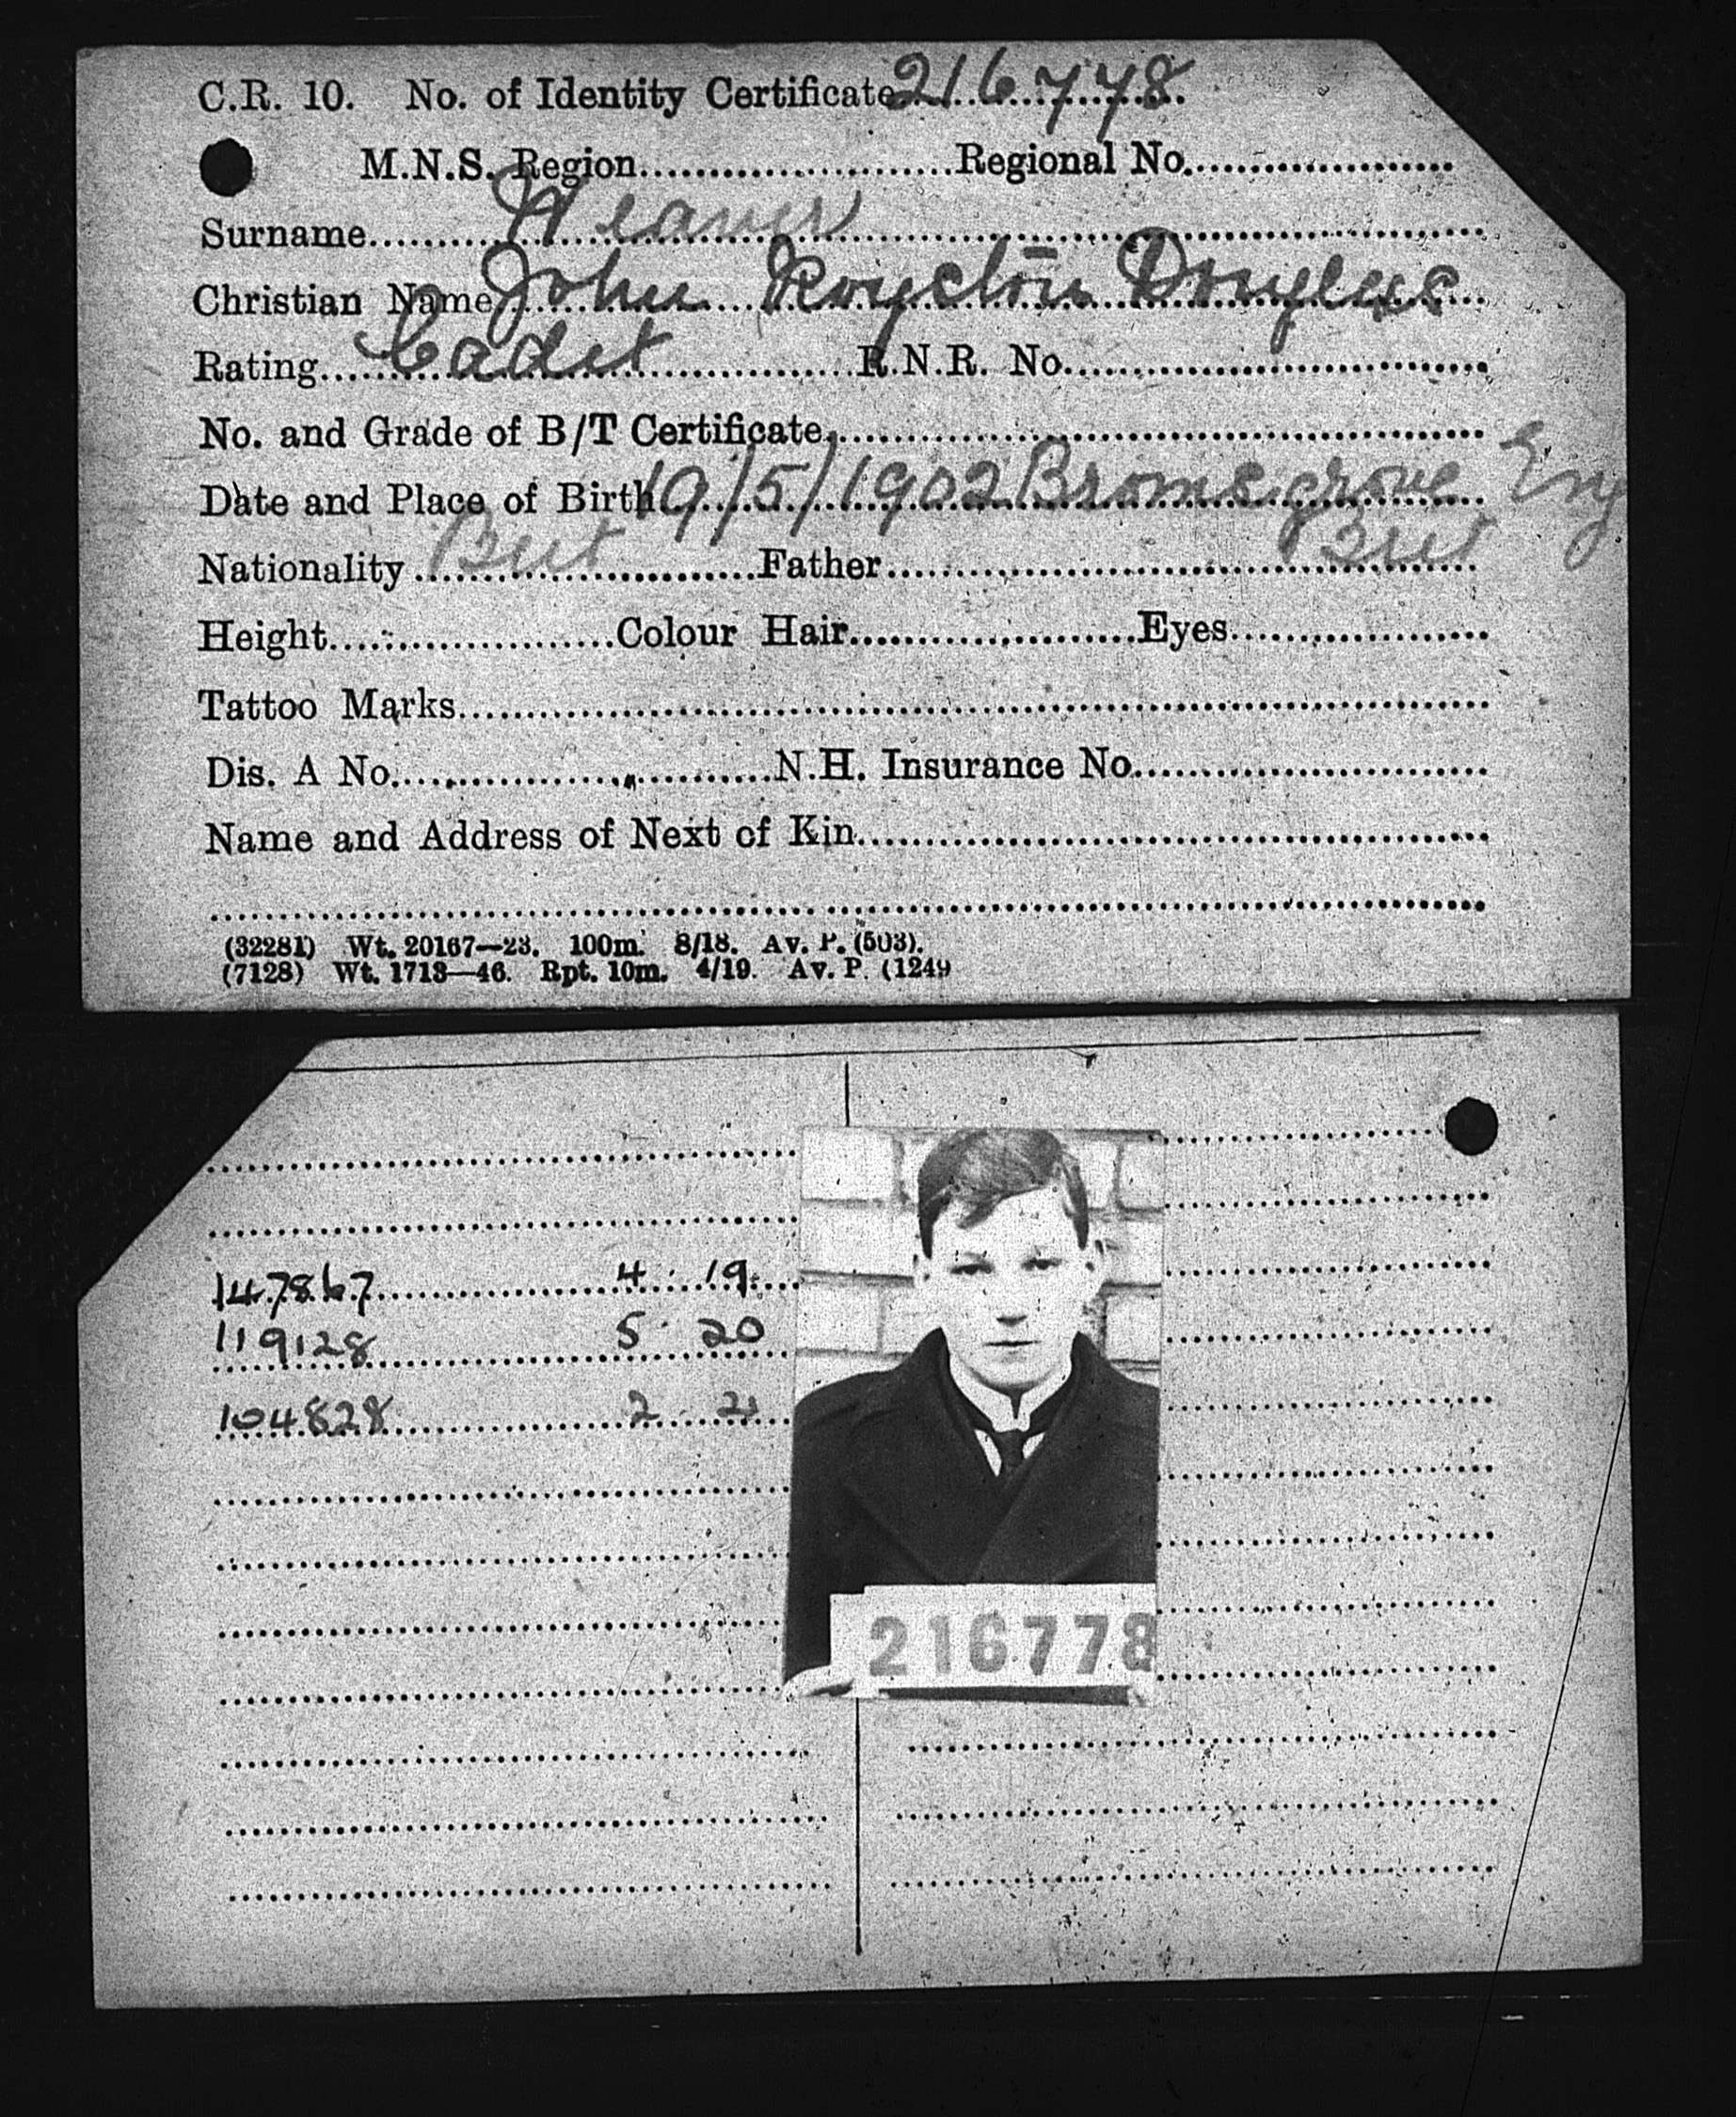 C.R. 10. No. of Identity Certificate 216778
M.N.S. Region Regional No.
Surname Weaver
Christian Name John Royston Douglass
Rating Cadet R.N.R. No.
No. and Grade of B/T Certificate
Date and Place of Birth 19/5/1902 Bromsgrove Eng
Nationality Brit Father Brit
Height Colour Hair Eyes
Tattoo Marks
Dis. A No. N.H. Insurance No.
Name and Address of Next of Kin
(32281) Wt. 20167—23. 100m. 8/18. Av. P. (503).
(7128) Wt. 1713—46. Rpt. 10m. 4/19. Av. P. (1249
147867 4 19
119128 5 20
104828 2 21
216778